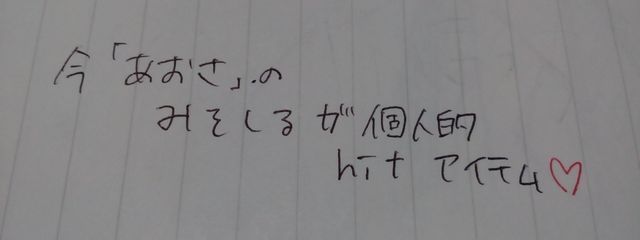 今「あおさ」の
みそしるが個人的
hit アイテム♡